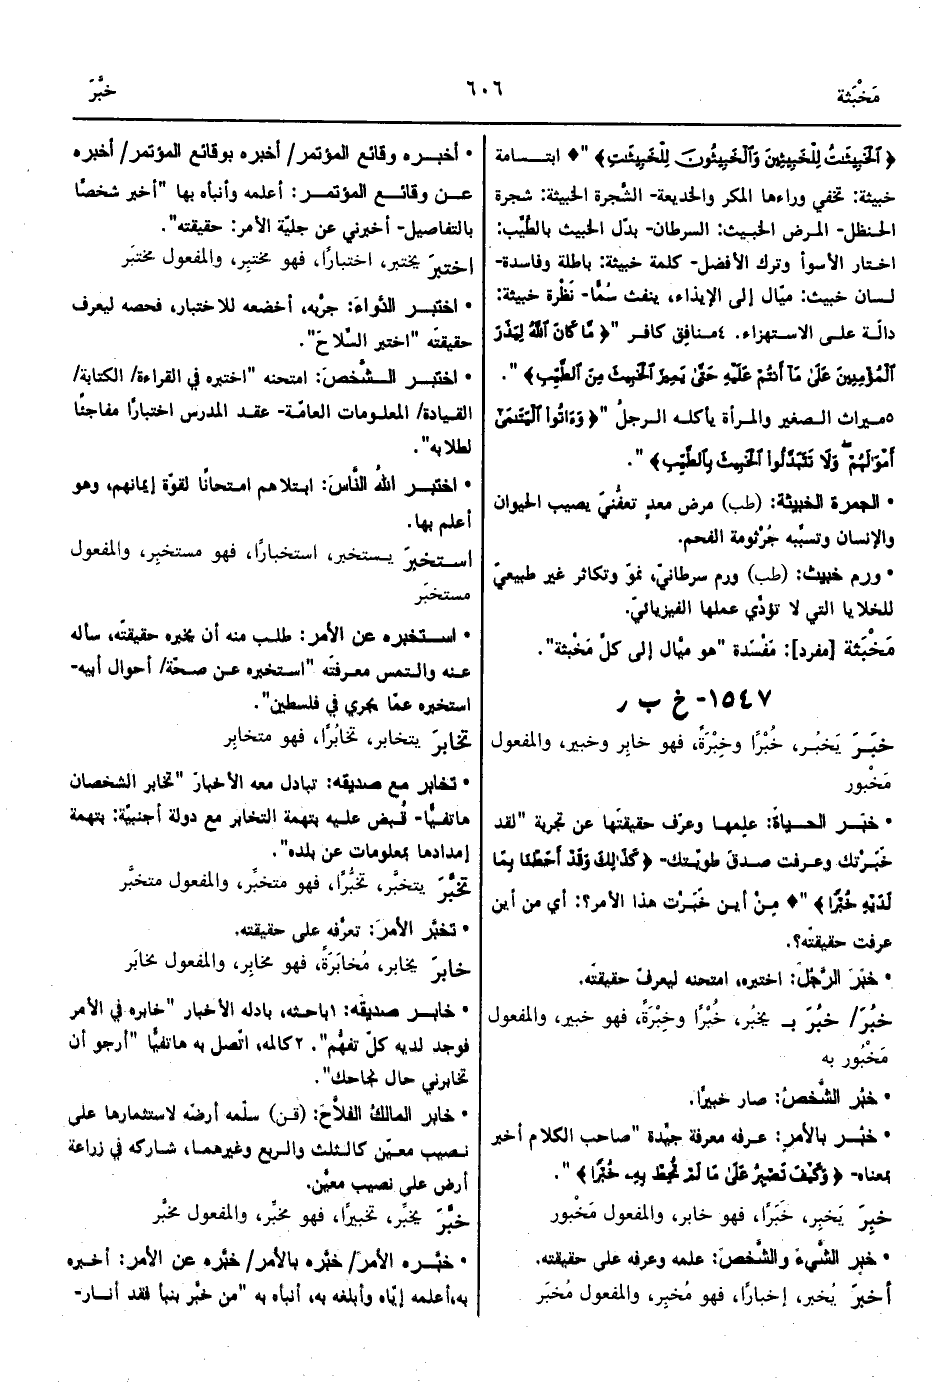 مَخْبَثة
٦٠٦
خبَّرَ
﴿الْخَبِيثَاتُ لِلْخَبِيثِينَ وَالْخَبِيثُونَ لِلْخَبِيثَاتِ﴾ "♦ ابتسامة
خبيثة: تخفي وراءها المكر والخديعة- الشَّجرة الخبيثة: شجرة
الحنظل- المرض الخبيث: السرطان- بدّل الخبيث بالطَّيِّب:
اختار الأسوأ وترك الأفضل- كلمة خبيثة: باطلة وفاسدة-
لسان خبيث: ميّال إلى الإيذاء، ينفث سُمًّا- نَظْرة خبيثة:
دالّة على الاستهزاء. ٤منافق كافر "﴿مَا كَانَ اللهُ لِيَذَرَ
الْمُؤْمِنِينَ عَلَى مَا أَنْتُمْ عَلَيْهِ حَتَّى يَمِيزَ الْخَبِيثَ مِنَ الطَّيِّبِ﴾".
٥ميراث الصغير والمرأة يأكله الرجلُ "﴿وَءَاتُوا الْيَتَامَى
أَمْوَالَهُمْ وَلَا تَتَبَدَّلُوا الْخَبِيثَ بِالطَّيِّبِ﴾".
• الجمرة الخبيثة: (طب) مرض معدٍ تعفُّنيّ يصيب الحيوان
والإنسان وتسبِّبه جُرْثومة الفحم.
• ورم خبيث: (طب) ورم سرطانيّ، نموّ وتكاثر غير طبيعيّ
للخلايا التي لا تؤدِّي عملها الفيزيائيّ.
مَخْبَثة [مفرد]: مَفْسَدة "هو ميّال إلى كلّ مَخْبثة".
١٥٤٧- خ ب ر
خبَرَ يَخبُر، خُبْرًا وخِبْرَةً، فهو خابِر وخبير، والمفعول
مَخْبور
• خبَر الحياةَ: علِمها وعرَف حقيقتَها عن تجربة "لقد
خَبَرْتك وعرفت صدقَ طويّتك- ﴿كَذَلِكَ وَقَدْ أَحَطْنَا بِمَا
لَدَيْهِ خُبْرًا﴾ "♦ مِنْ أين خَبَرْت هذا الأمر؟: أي من أين
عرفت حقيقتَه؟.
• خبَرَ الرَّجُلَ: اختبره، امتحنه ليعرفَ حقيقتَه.
خبُرَ/ خبُرَ بـ يَخبُر، خُبْرًا وخِبْرَةً، فهو خبير، والمفعول
مَخْبُور به
• خبُر الشَّخصُ: صار خبيرًا.
• خبُر بالأمرِ: عرفه معرفة جيِّدة "صاحب الكلام أخبر
بمعناه- ﴿وَكَيْفَ تَصْبِرُ عَلَى مَا لَمْ تُحِطْ بِهِ خُبْرًا﴾".
خبِرَ يَخبِر، خَبَرًا، فهو خابر، والمفعول مَخْبور
• خبِر الشَّيءَ والشَّخصَ: علمه وعرفه على حقيقته.
أخبرَ يُخبر، إخبارًا، فهو مُخبِر، والمفعول مُخبَر
• أخبره وقائع المؤتمر/ أخبره بوقائع المؤتمر/ أخبره
عن وقائع المؤتمر: أعلمه وأنبأه بها "أخبر شخصًا
بالتفاصيل- أخبرني عن جليّة الأمر: حقيقته".
اختبرَ يختبر، اختبارًا، فهو مختبِر، والمفعول مختبَر
• اختبر الدَّواءَ: جرّبه، أخضعه للاختبار، فحصه ليعرف
حقيقتَه "اختبر السِّلاحَ".
• اختبر الشَّخصَ: امتحنه "اختبره في القراءة/ الكتابة/
القيادة/ المعلومات العامّة- عقد المدرس اختبارًا مفاجئًا
لطلابه".
• اختبر اللهُ النَّاسَ: ابتلاهم امتحانًا لقوّة إيمانهم، وهو
أعلم بها.
استخبرَ يستخبر، استخبارًا، فهو مستخبِر، والمفعول
مستخبَر
• استخبره عن الأمر: طلب منه أن يخبره حقيقتَه، سأله
عنه والتمس معرفتَه "استخبره عن صحّة/ أحوال أبيه-
استخبره عمّا يجري في فلسطين".
تخابرَ يتخابر، تخابُرًا، فهو متخابِر
• تخابر مع صديقه: تبادل معه الأخبارَ "تخابر الشخصان
هاتفيًّا- قُبض عليه بتهمة التخابر مع دولة أجنبيّة: بتهمة
إمدادها بمعلومات عن بلده".
تخبَّرَ يتخبَّر، تخبُّرًا، فهو متخبِّر، والمفعول متخبَّر
• تخبَّر الأمرَ: تعرَّفه على حقيقته.
خابرَ يخابر، مُخابَرَةً، فهو مخابِر، والمفعول مخابَر
• خابر صديقَه: ١باحثه، بادله الأخبار "خابره في الأمر
فوجد لديه كلّ تفهُّم". ٢كالمه، اتّصل به هاتفيًّا "أرجو أن
تخابرني حال نجاحك".
• خابر المالكُ الفلاَّحَ: (قن) سلّمه أرضَه لاستثمارها على
نصيب معيّن كالثلث والربع وغيرهما، شاركه في زراعة
أرض على نصيب معيَّن.
خبَّرَ يخبِّر، تخبيرًا، فهو مخبِّر، والمفعول مخبَّر
• خبَّره الأمرَ/ خبَّره بالأمر/ خبَّره عن الأمر: أخبره
به، أعلمه إيّاه وأبلغه به، أنبأه به "من خبَّر بنبأ فقد أنار-